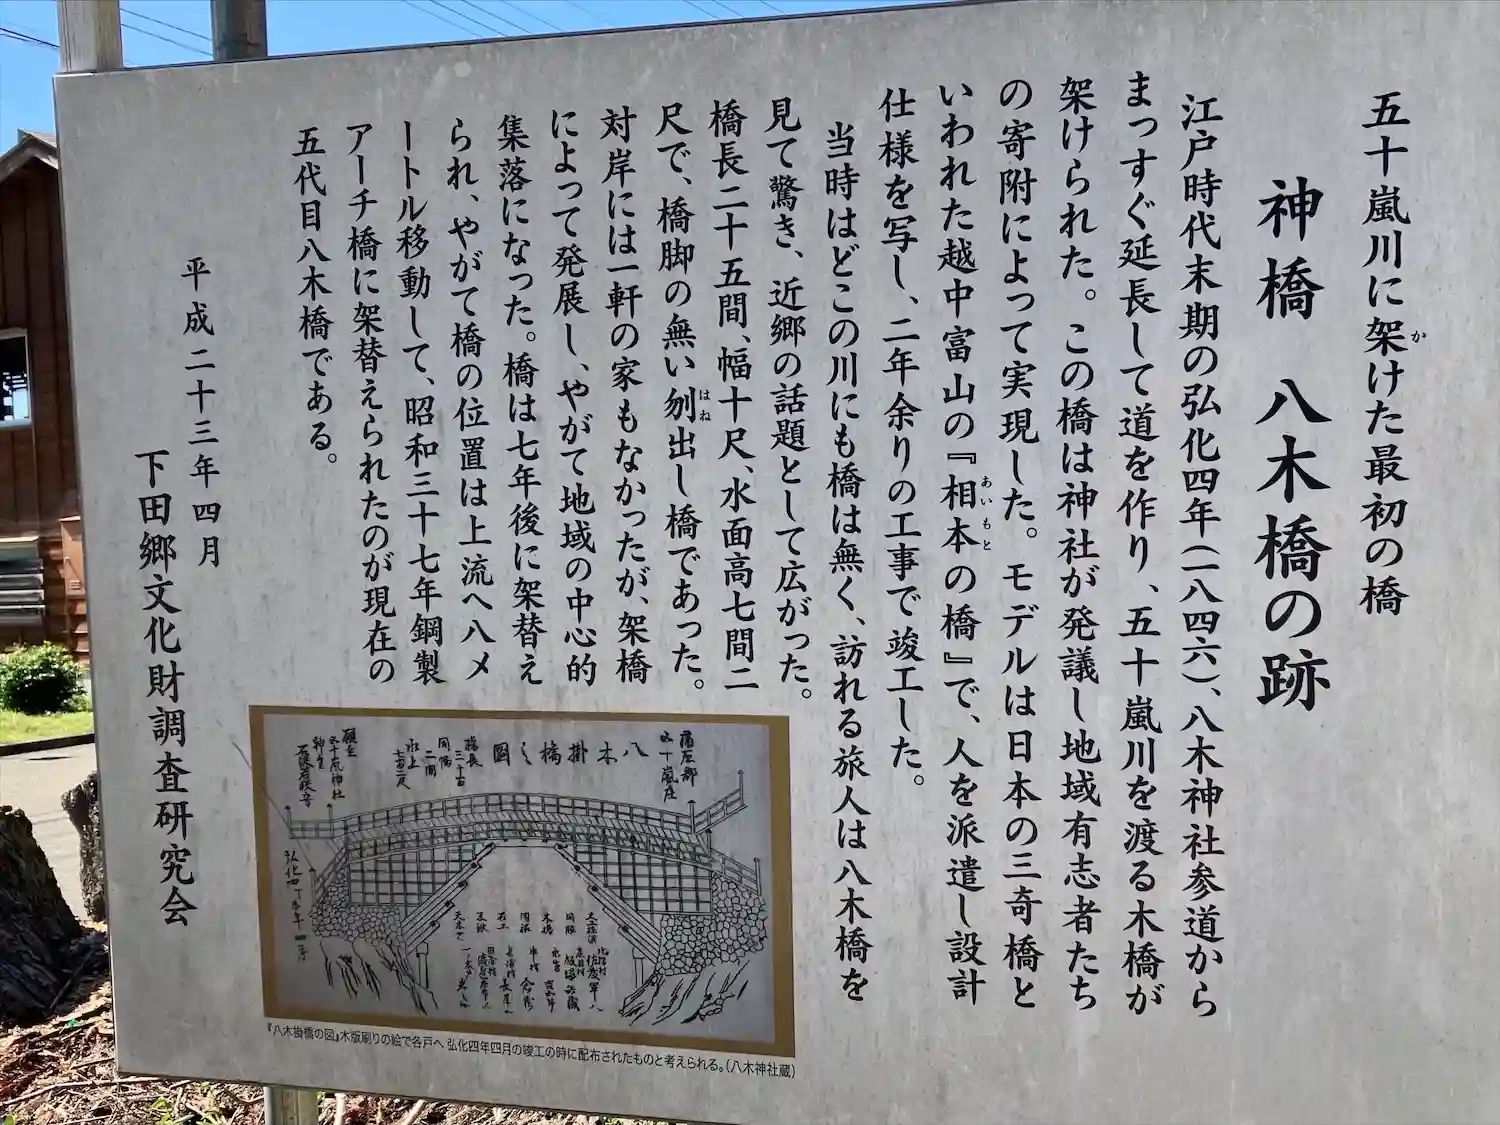 五十嵐川に架けた最初の橋
か
神橋 八木橋の跡
江戸時代末期の弘化四年(一八四六)、八木神社参道から
まっすぐ延長して道を作り、五十嵐川を渡る木橋が
架けられた。この橋は神社が発議し地域有志者たち
の寄附によって実現した。モデルは日本の三奇橋と
いわれた越中富山の『相本の橋』で、人を派遣し設計
あいもと
仕様を写し、二年余りの工事で竣工した。
当時はどこの川にも橋は無く、訪れる旅人は八木橋を
見て驚き、近郷の話題として広がった。
橋長二十五間、幅十尺、水面高七間二
尺で、橋脚の無い刎出し橋であった。
はね
対岸には一軒の家もなかったが、架橋
によって発展し、やがて地域の中心的
集落になった。橋は七年後に架替え
られ、やがて橋の位置は上流へ八メ
ートル移動して、昭和三十七年鋼製
アーチ橋に架替えられたのが現在の
五代目八木橋である。
平成二十三年四月
下田郷文化財調査研究会
蒲原郡
五十嵐庄
八木掛橋之図
橋長
三十間
同幅
二間
水上
七間二尺
願主
五十嵐神社
神主
弘化四丁未年 四月
『八木掛橋の図』木版刷りの絵で各戸へ 弘化四年四月の竣工の時に配布されたものと考えられる。(八木神社蔵)